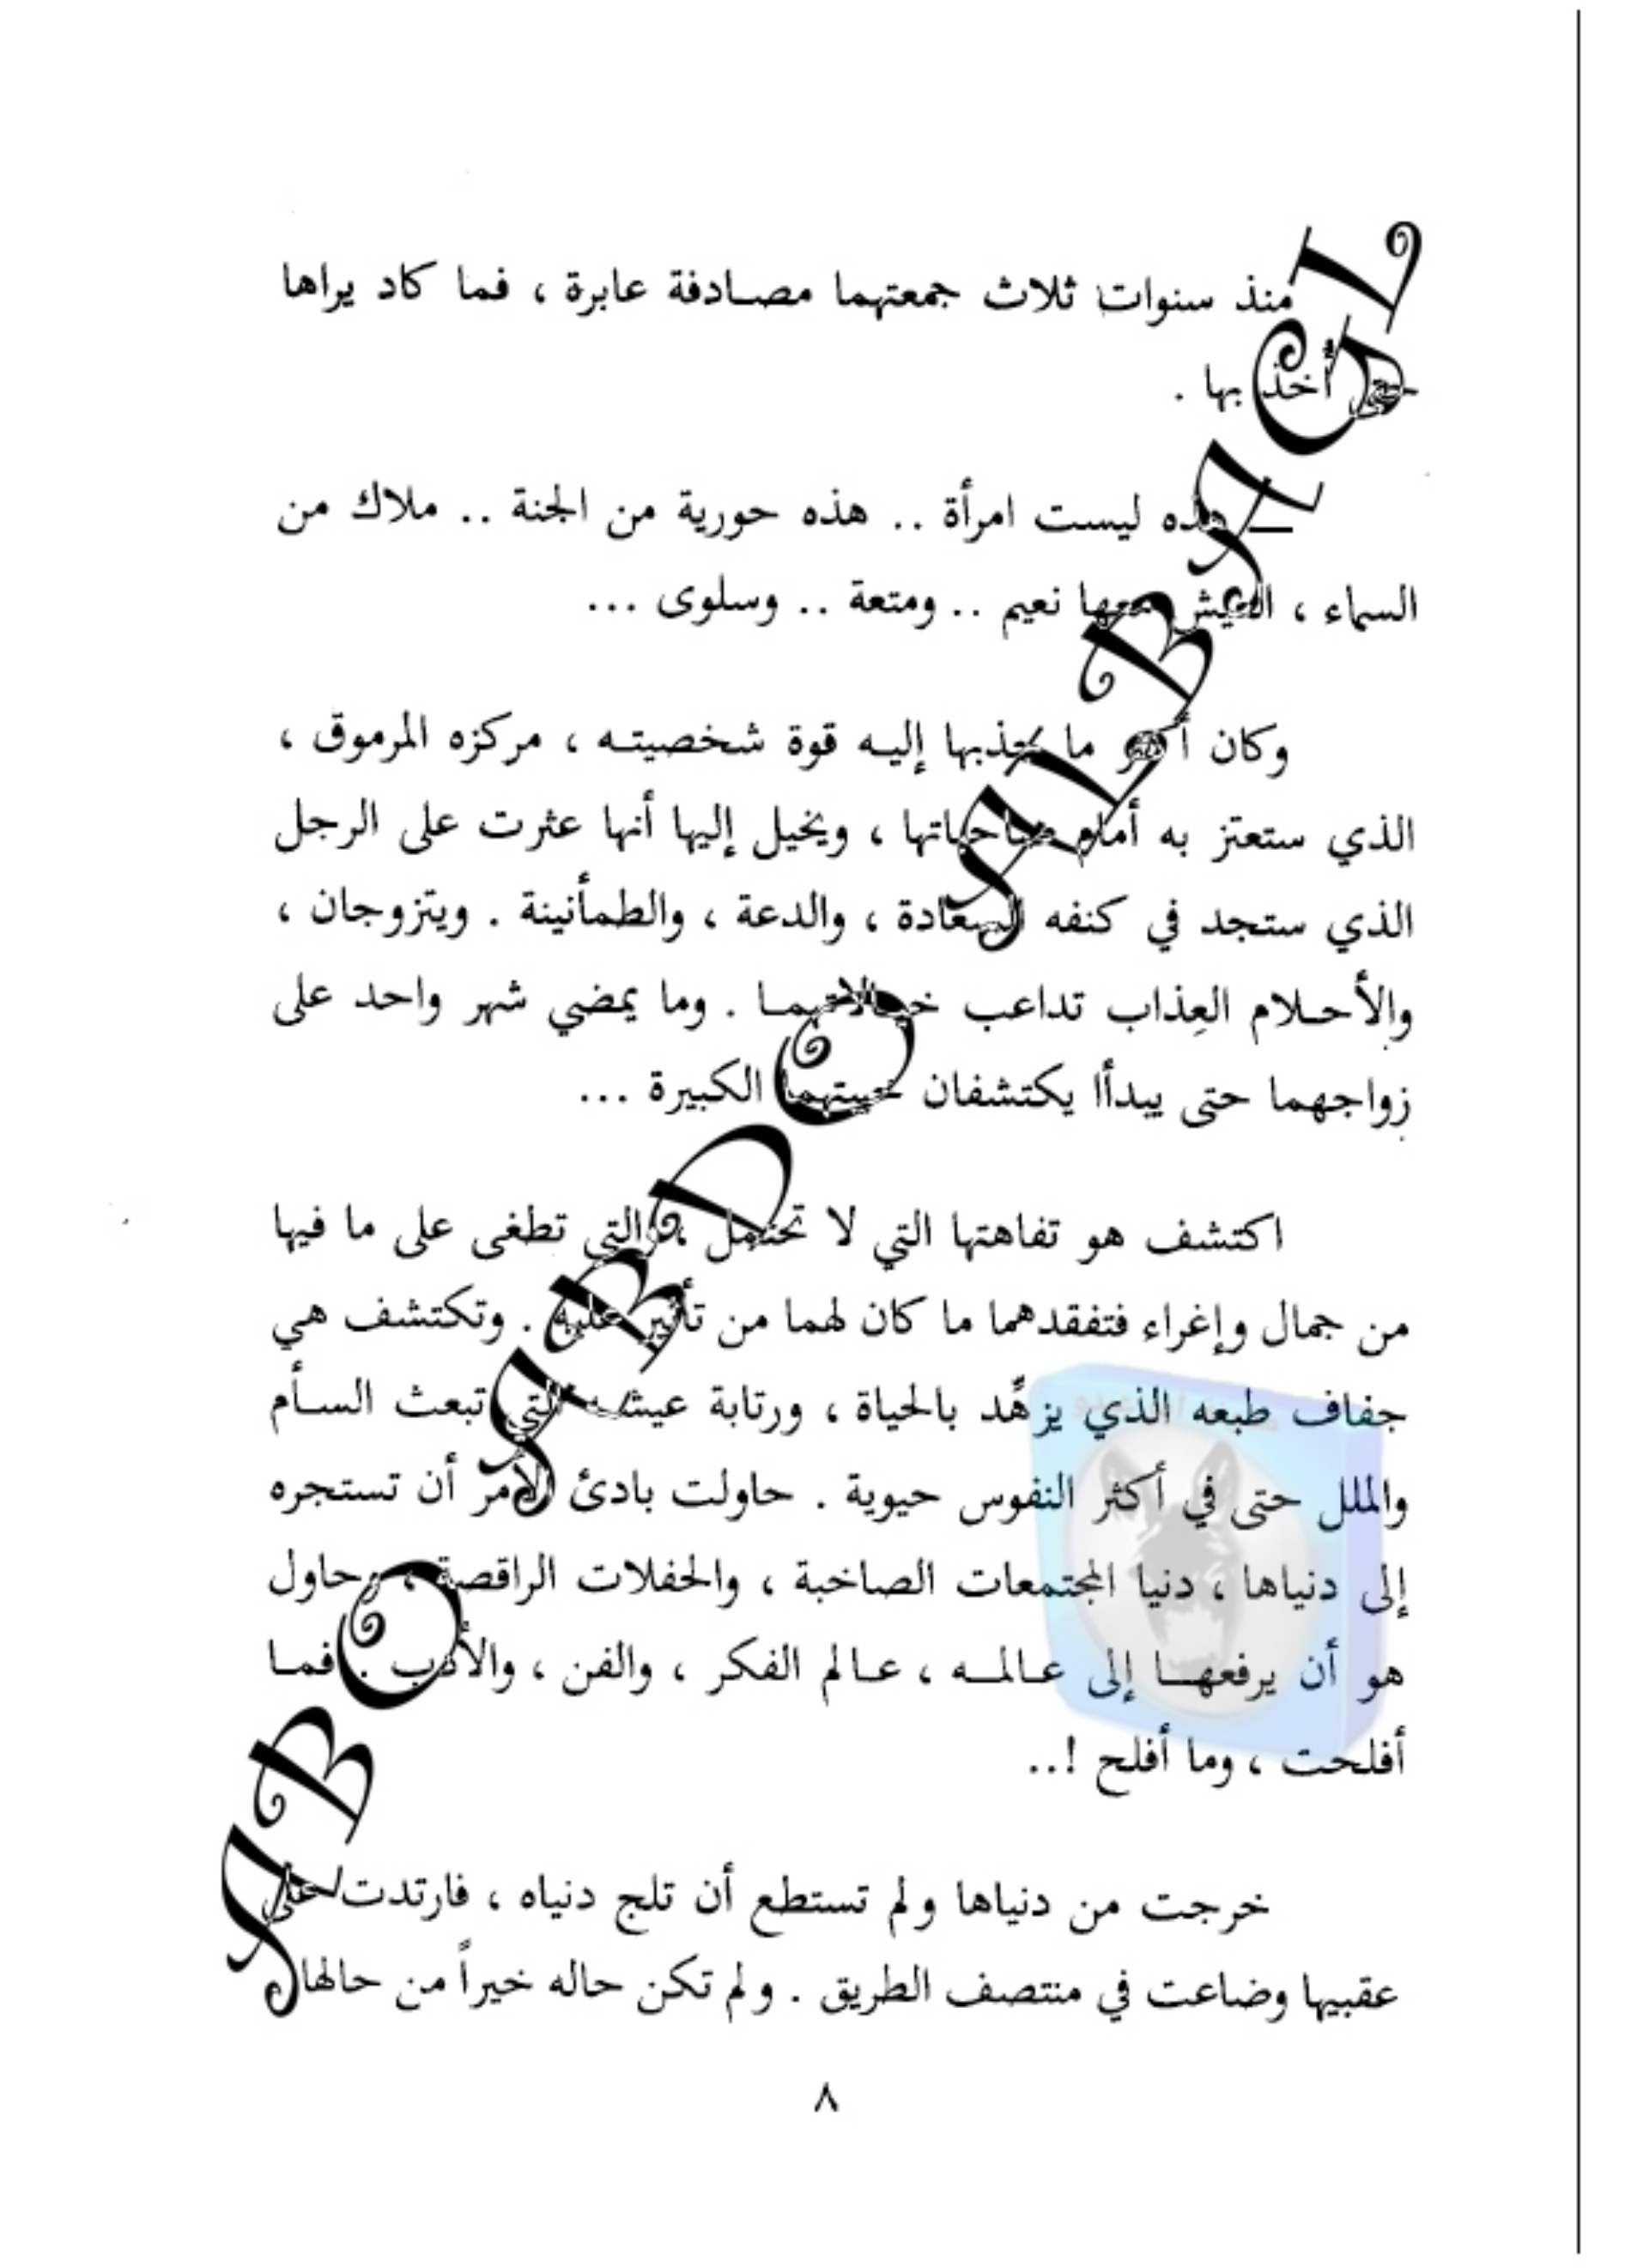 منذ سنوات ثلاث جمعتهما مصادفة عابرة ، فما كاد يراها
حتى أخذ بها .
— هذه ليست امرأة .. هذه حورية من الجنة .. ملاك من
السماء ، العيش معها نعيم .. ومتعة .. وسلوى ...
وكان أكثر ما يجذبها إليه قوة شخصيته ، مركزه المرموق ،
الذي ستعتز به أمام صاحباتها ، ويخيل إليها أنها عثرت على الرجل
الذي ستجد في كنفه السعادة ، والدعة ، والطمأنينة . ويتزوجان ،
والأحلام العِذاب تداعب خيالاتهما . وما يمضي شهر واحد على
زواجهما حتى يبدأا يكتشفان خيبتهما الكبيرة ...
اكتشف هو تفاهتها التي لا تحتمل ، والتي تطغى على ما فيها
من جمال وإغراء فتفقدهما ما كان لهما من تأثير عليه . وتكتشف هي
جفاف طبعه الذي يزهِّد بالحياة ، ورتابة عيشه التي تبعث السأم
والملل حتى في أكثر النفوس حيوية . حاولت بادئ الأمر أن تستجره
إلى دنياها ، دنيا المجتمعات الصاخبة ، والحفلات الراقصة ، وحاول
هو أن يرفعها إلى عالمه ، عالم الفكر ، والفن ، والأدب . فما
أفلحت ، وما أفلح !..
خرجت من دنياها ولم تستطع أن تلج دنياه ، فارتدت على
عقبيها وضاعت في منتصف الطريق . ولم تكن حاله خيراً من حالها
٨
ABO ABDO ALBAGL